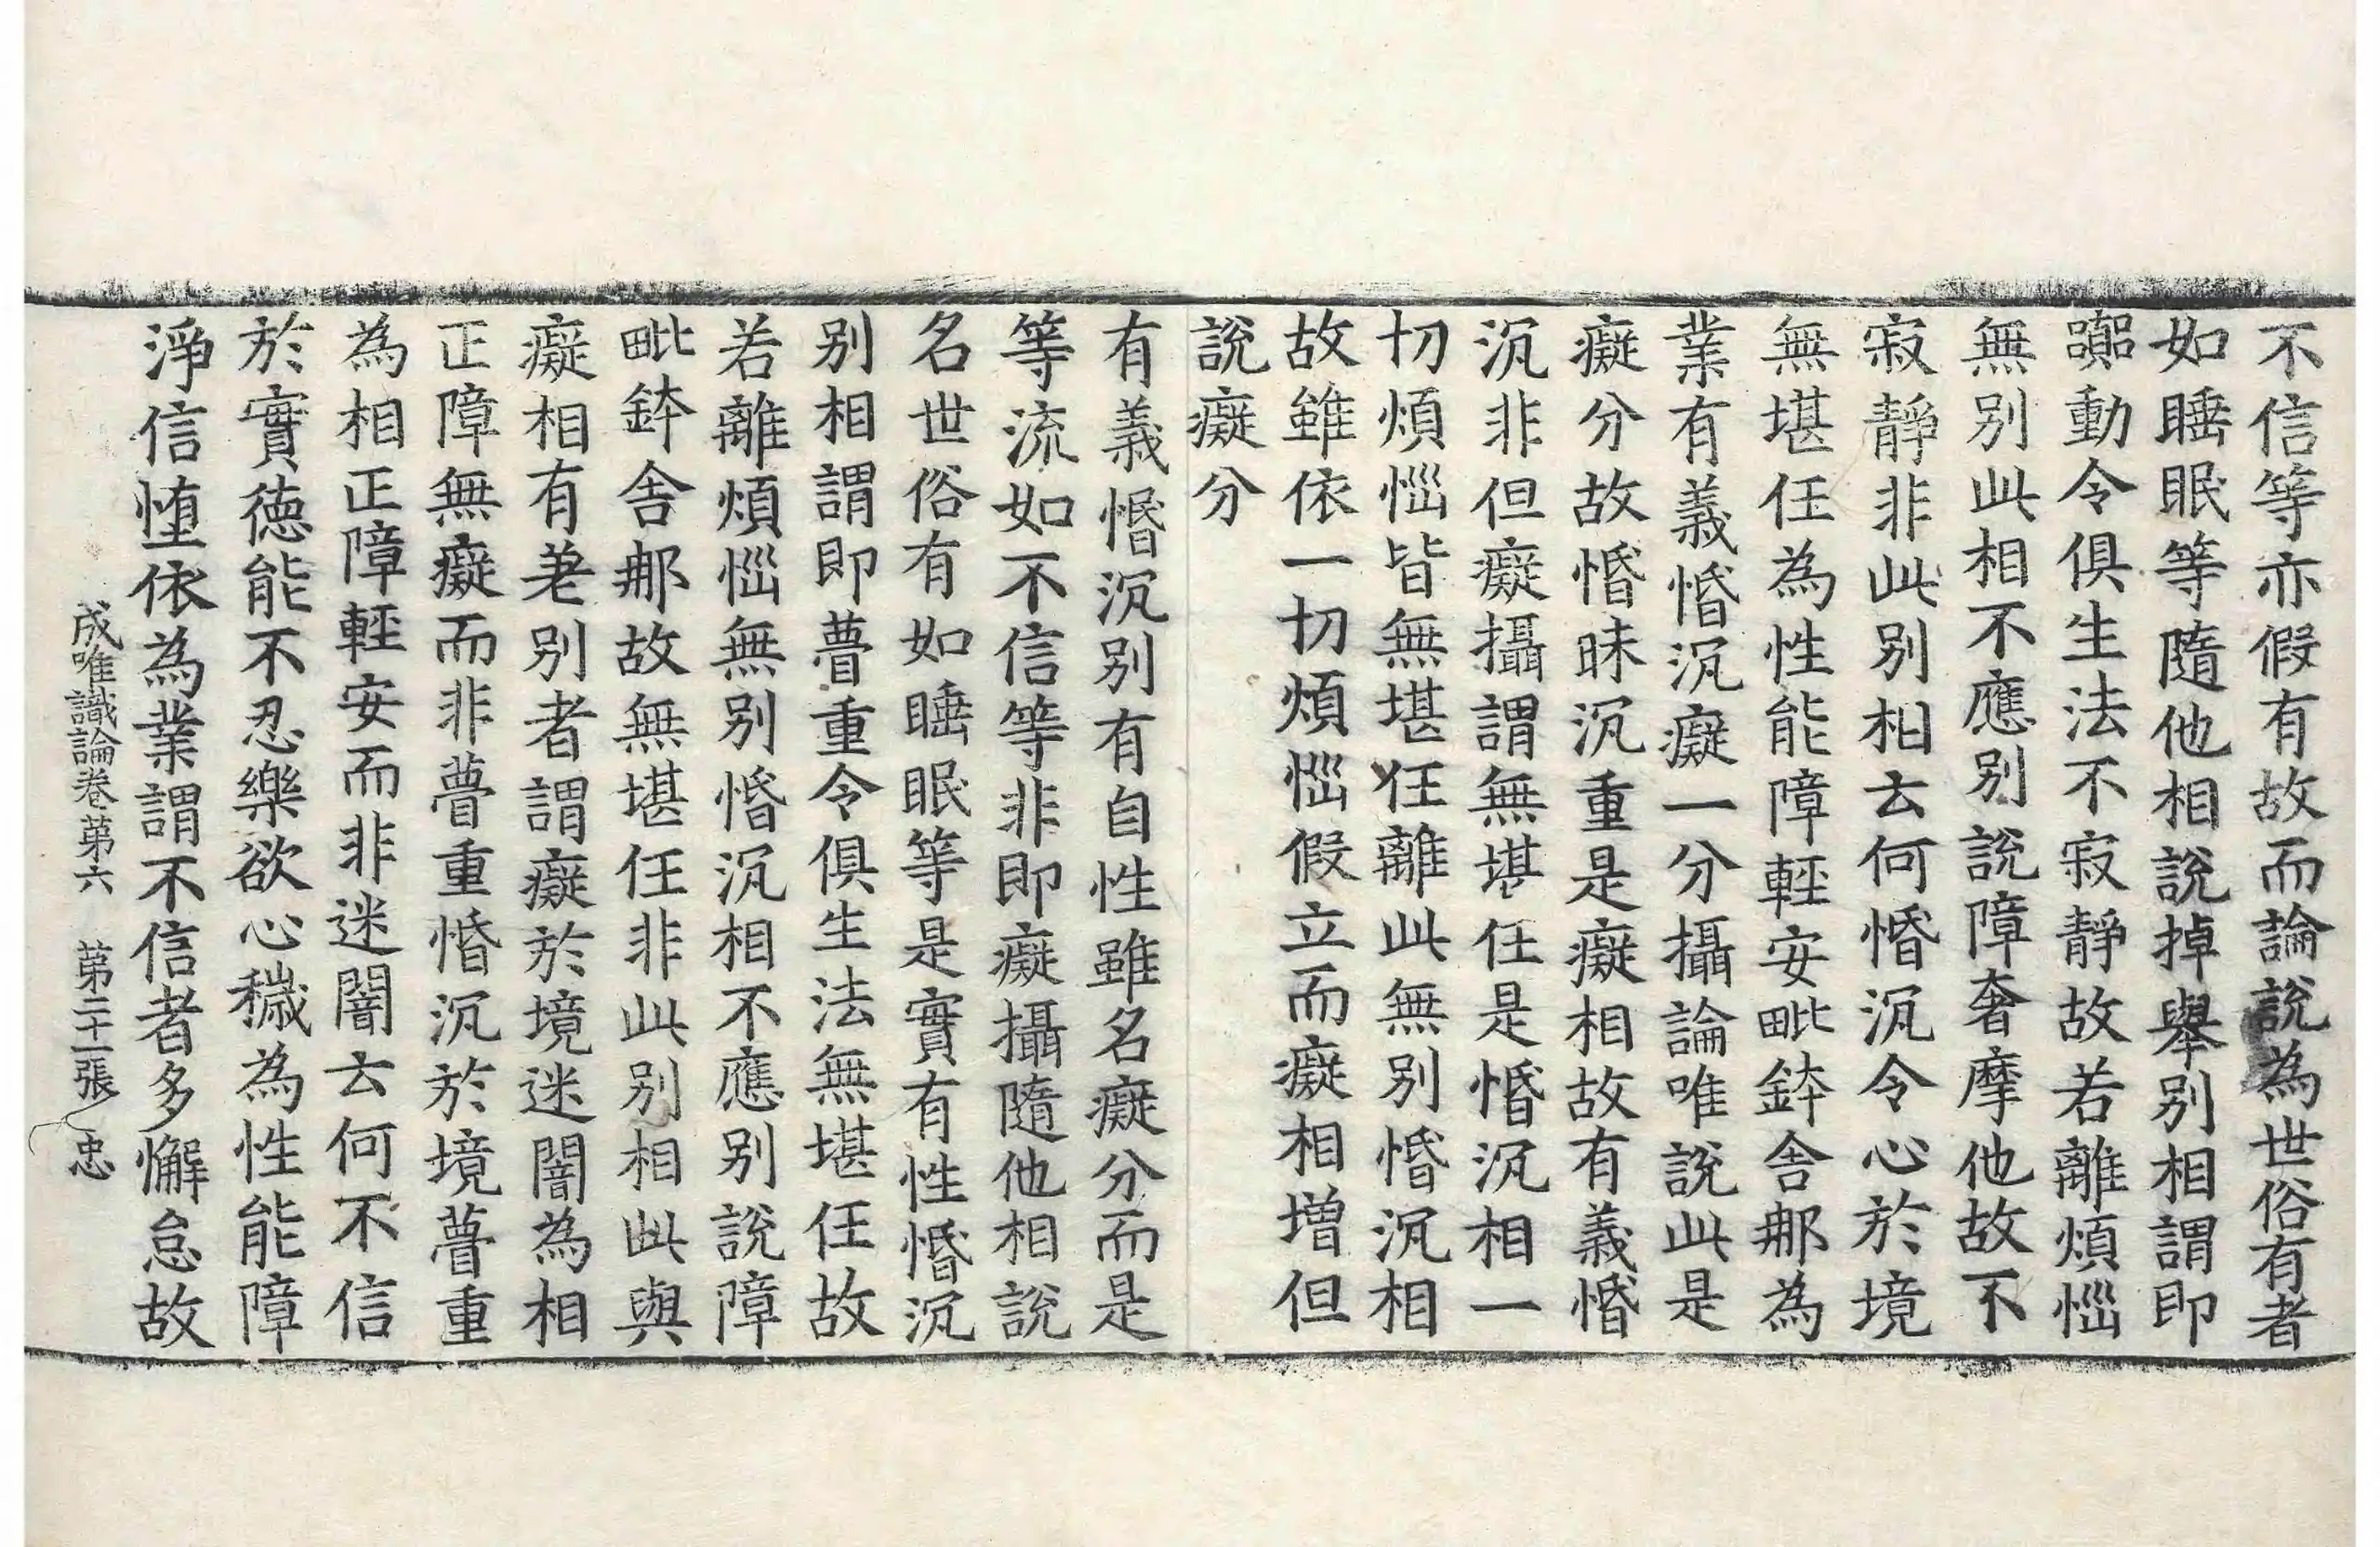 不信等亦假有故而論說為世俗有者
如睡眠等隨他相說掉舉別相謂即
嚻動令俱生法不寂靜故若離煩惱
無別此相不應別說障奢摩他故不
寂靜非此別相云何惛沉令心於境
無堪任為性能障輕安毗鉢舍那為
業有義惛沉癡一分攝論唯說此是
癡分故惛昧沉重是癡相故有義惛
沉非但癡攝謂無堪任是惛沉相一
切煩惱皆無堪任離此無別惛沉相
故雖依一切煩惱假立而癡相增但
說癡分
有義惛沉別有自性雖名癡分而是
等流如不信等非即癡攝隨他相說
名世俗有如睡眠等是實有性惛沉
別相謂即瞢重令俱生法無堪任故
若離煩惱無別惛沉相不應別說障
毗鉢舍那故無堪任非此別相此與
癡相有差別者謂癡於境迷闇為相
正障無癡而非瞢重惛沉於境瞢重
為相正障輕安而非迷闇云何不信
於實德能不忍樂欲心穢為性能障
淨信墮依為業謂不信者多懈怠故
成唯識論卷第六　第二十一張　忠